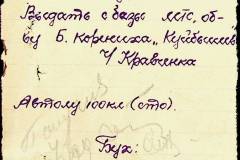 Выдать с базы МТС, об-
ву Б. корениха, "Куйбышева"
Ч/ Кравченка
Автолу 100кл (сто).
Бух: